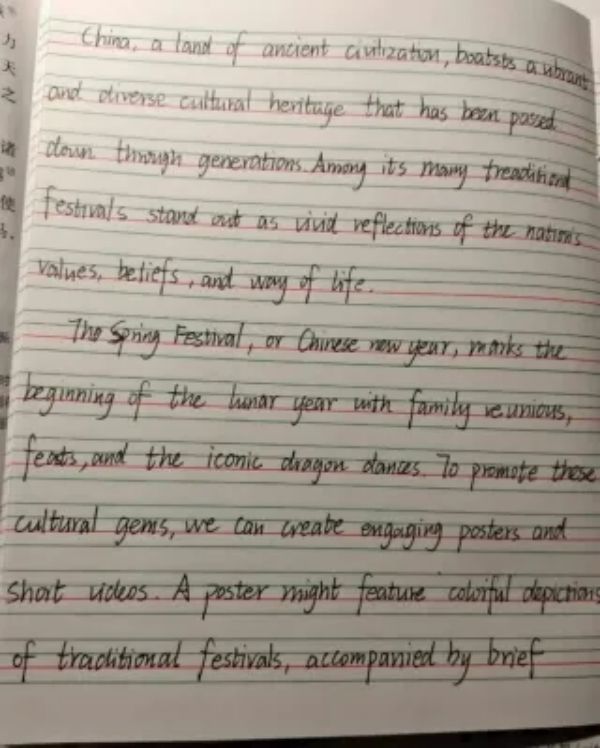 China, a land of ancient civilization, boatsts a vibrant
and diverse cultural heritage that has been passed
down through generations. Among its many treaditional
festivals stand out as vivid reflections of the nation's
values, beliefs, and way of life.
The Spring Festival, or Chinese new year, marks the
beginning of the lunar year with family reunions,
feasts, and the iconic dragon dances. To promote these
cultural gems, we can create engaging posters and
short videos. A poster might feature colorful depictions
of traditional festivals, accompanied by brief
力
天
之
诸
使